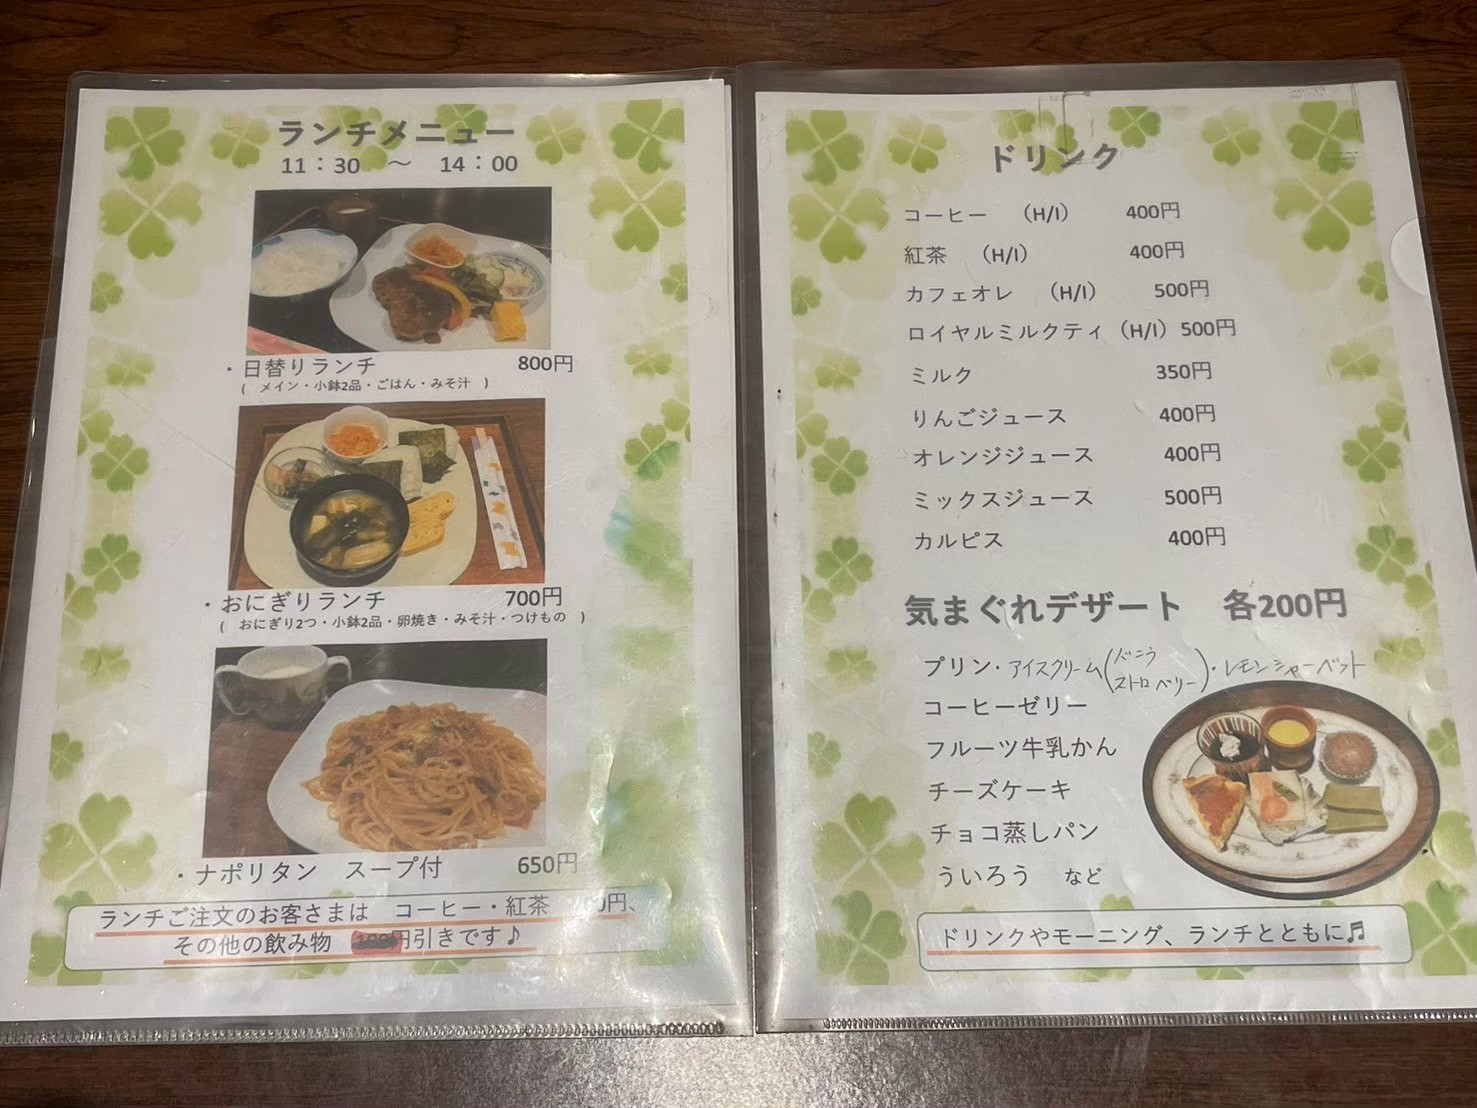 ランチメニュー
11：30　～　14：00
・日替りランチ　800円
(　メイン・小鉢2品・ごはん・みそ汁　)
・おにぎりランチ　700円
(　おにぎり2つ・小鉢2品・卵焼き・みそ汁・つけもの　)
・ナポリタン　スープ付　650円
ランチご注文のお客さまは　コーヒー・紅茶　円、
その他の飲み物　円引きです♪
ドリンク
コーヒー　（H/I）　400円
紅茶　（H/I）　400円
カフェオレ　（H/I）　500円
ロイヤルミルクティ（H/I）500円
ミルク　350円
りんごジュース　400円
オレンジジュース　400円
ミックスジュース　500円
カルピス　400円
気まぐれデザート　各200円
プリン・アイスクリーム(バニラ ストロベリー)・レモンシャーベット
コーヒーゼリー
フルーツ牛乳かん
チーズケーキ
チョコ蒸しパン
ういろう　など
ドリンクやモーニング、ランチとともに♬